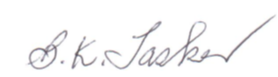 B. K. Tasker